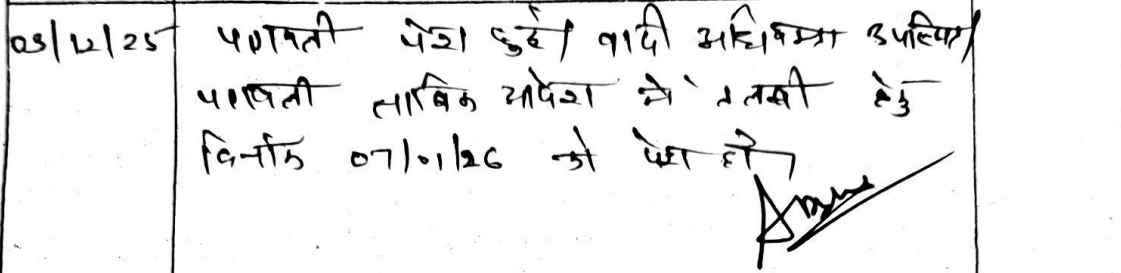 03/12/25 पत्रावली पेश हुई। वादी अधिवक्ता उपस्थित।
पत्रावली साबिक आदेश में तलबी हेतु
दिनांक 07/01/26 को पेश हो।